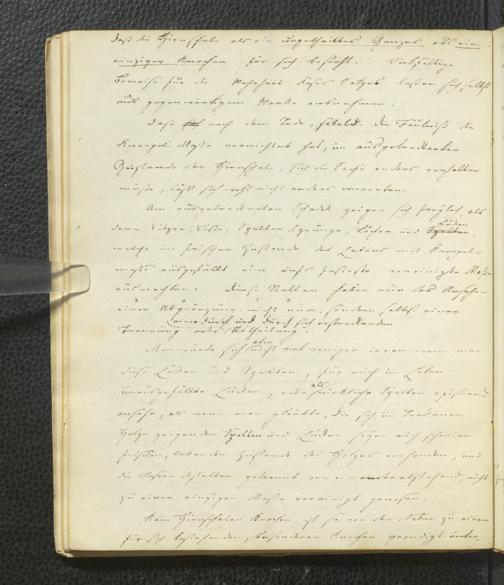 daß die Hirnschale als ein ungetheiltes Ganzes, als ein
einziger Knochen für sich besteht. Vielfältige
Beweise für die Wahrheit dieses Satzes lassen sich selbst
aus gegenwärtigem Werke entnehmen.
Daß nach dem Tode, sobald die Fäulniß die
Knorpel Masse vernichtet hat, im ausgetrockneten
Zustande der Hirnschale, sich die Sache anders verhalten
müsse, läßt sich wohl nicht anders erwarten.
Am ausgetrockneten Schädel zeigen sich freylich als
dann Ritzen, Risse, Spalten, Sprünge, Löcher und Lücken
welche im frischen Zustande des Lebens mit Knorpel-
masse ausgefüllt eine aufs festeste vereinigte Masse
ausmachten. Diese Stellen haben nun das Ansehen
einer Abgränzung nicht nur, sondern selbst einer
durch und durch sich erstreckenden
Trennung oder Abtheilung.
Man würde sich aber nicht viel weniger irren wenn man
diese Lücken und Spalten, für auch im Leben
unausgefüllte Lücken, oder als wirkliche Spalten existirend
ansähe, als wenn man glaubte, die sich im trockenen
Holze zeigenden Spalten und Lücken seyen auch schon im
frischen, lebenden Zustande des Holzes vorhanden, und
die Fasern desselben getrennt von einander abstehend, nicht
zu einer einzigen Masse vereinigt gewesen.
Kein Hirnschalen Knochen ist je von der Natur zu einem
für sich bestehenden, besonderen Knochen geendigt